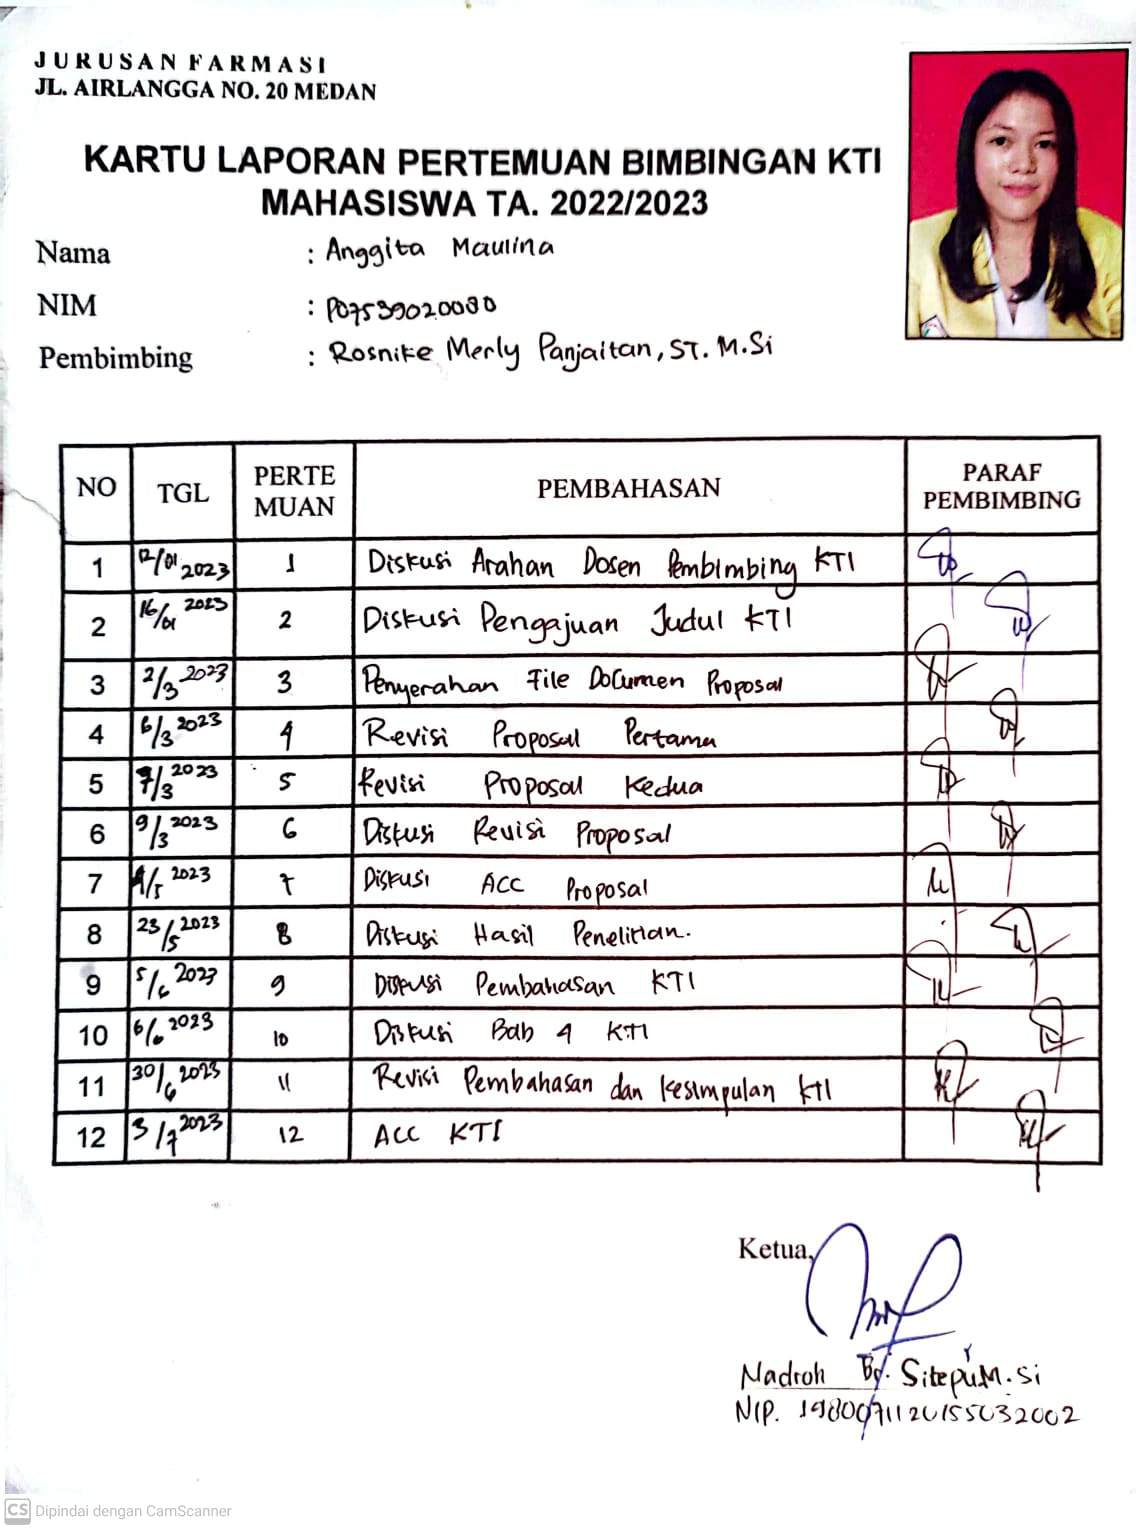 JURUSAN FARMASI
JL. AIRLANGGA NO. 20 MEDAN
KARTU LAPORAN PERTEMUAN BIMBINGAN KTI
MAHASISWA TA. 2022/2023
Nama : Anggita Maulina
NIM : P07539020080
Pembimbing : Rosnike Merly Panjaitan, ST. M.Si
NO TGL PERTE MUAN PEMBAHASAN PARAF PEMBIMBING
1 12/01 2023 1 Diskusi Arahan Dosen Pembimbing KTI
2 16/01 2023 2 Diskusi Pengajuan Judul KTI
3 2/3 2023 3 Penyerahan File Documen Proposal
4 6/3 2023 4 Revisi Proposal Pertama
5 7/3 2023 5 Revisi Proposal Kedua
6 9/3 2023 6 Diskusi Revisi Proposal
7 4/5 2023 7 Diskusi ACC Proposal
8 23/5 2023 8 Diskusi Hasil Penelitian.
9 5/6 2023 9 Diskusi Pembahasan KTI
10 6/6 2023 10 Diskusi Bab 4 KTI
11 30/6 2023 11 Revisi Pembahasan dan Kesimpulan KTI
12 3/7 2023 12 ACC KTI
Ketua,
Nadroh Br. Sitepu M.Si
NIP.
CS Dipindai dengan CamScanner